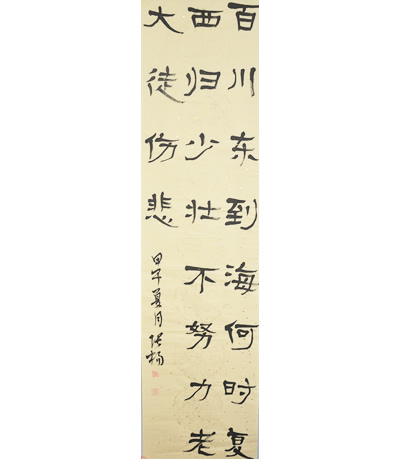 百川东到海何时复
西归少壮不努力老
大徒伤悲
甲午夏月张杨